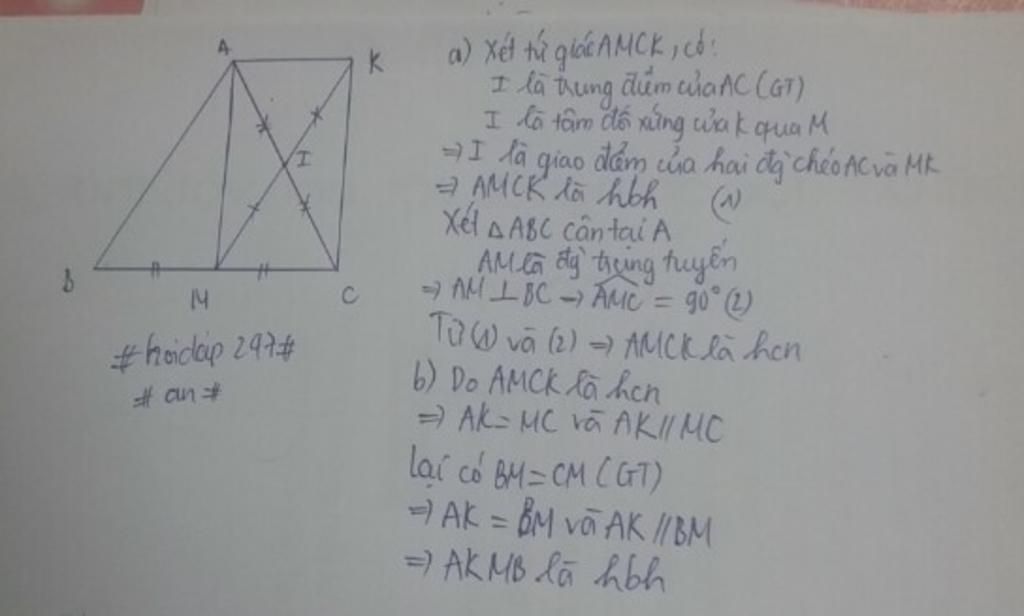 A
K
I
B
M
C
#hoidap247#
#an#
a) Xét tứ giác AMCK, có:
I là trung điểm của AC (GT)
I là tâm đối xứng của K qua M
=> I là giao điểm của hai đg` chéo AC và MK
=> AMCK là hbh (1)
Xét △ABC cân tại A
AM là đg` trung tuyến
=> AM ⊥ BC → \widehat{AMC} = 90° (2)
Từ (1) và (2) => AMCK là hcn
b) Do AMCK là hcn
=> AK = MC và AK // MC
lại có BM = CM (GT)
=> AK = BM và AK // BM
=> AKMB là hbh